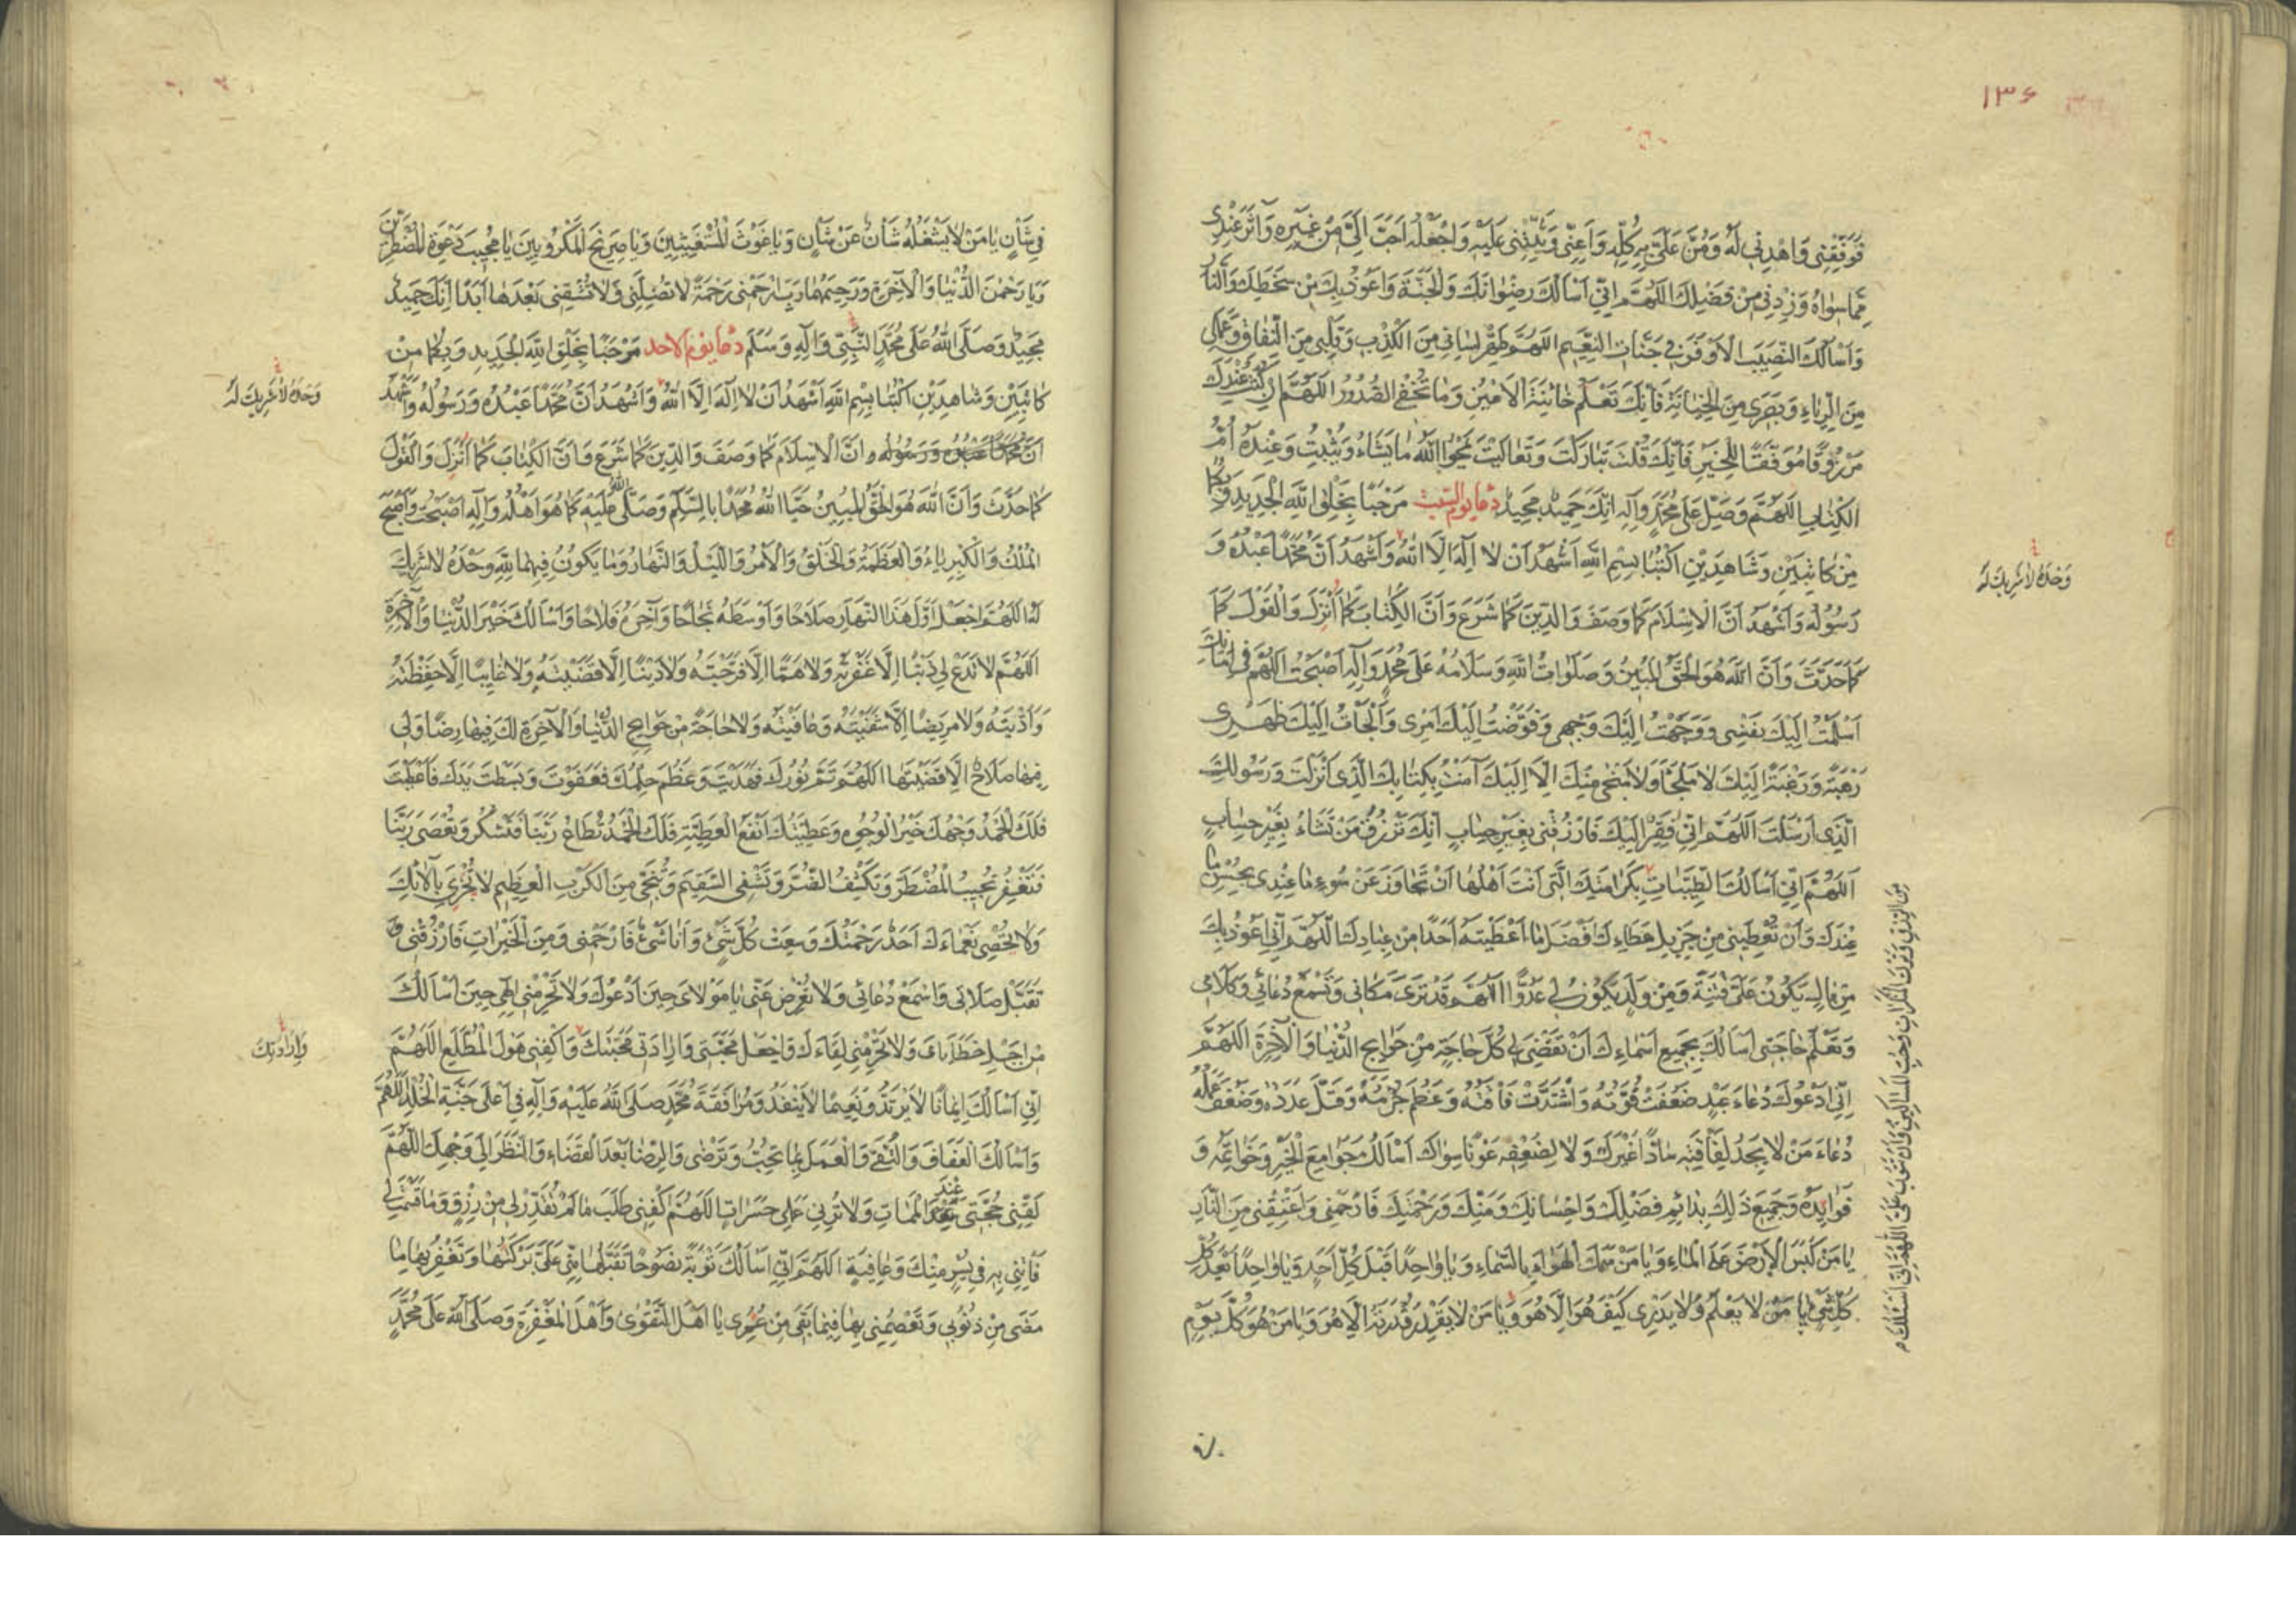 ١٣۶
فَوَفِّقْنِی وَاهْدِنِی لَهُ وَمُنَّ عَلَیَّ بِهِ کُلِّهِ وَاَعِنِّی وَثَبِّتْنِی عَلَیْهِ وَاجْعَلْهُ اَحَبَّ اِلَیَّ مِنْ غَیْرِهِ وَآثَرَ عِنْدِی
مِمَّا سِوَاهُ وَزِدْنِی مِنْ فَضْلِكَ اَللّٰهُمَّ اِنِّی اَسْاَلُكَ رِضْوَانَكَ وَالْجَنَّةَ وَاَعُوذُ بِكَ مِنْ سَخَطِكَ وَالنَّارِ
وَاَسْاَلُكَ النَّصِیبَ الْاَوْفَرَ فِی جَنَّاتِ النَّعِیمِ اَللّٰهُمَّ طَهِّرْ لِسَانِی مِنَ الْكَذِبِ وَقَلْبِی مِنَ النِّفَاقِ وَعَمَلِی
مِنَ الرِّیَاءِ وَبَصَرِی مِنَ الْخِیَانَةِ فَاِنَّكَ تَعْلَمُ خَائِنَةَ الْاَعْیُنِ وَمَا تُخْفِی الصُّدُورُ اَللّٰهُمَّ اِنْ كُنْتُ عِنْدَكَ
مَرْزُوقًا مُوَفَّقًا لِلْخَیْرِ فَاِنَّكَ قُلْتَ تَبَارَكْتَ وَتَعَالَیْتَ یَمْحُوا اللّٰهُ مَا یَشَاءُ وَیُثْبِتُ وَعِنْدَهُ اُمُّ
الْكِتَابِ اَللّٰهُمَّ وَصَلِّ عَلَی مُحَمَّدٍ وَآلِهِ اِنَّكَ حَمِیدٌ مَجِیدٌ دعاء یوم السبت مَرْحَبًا بِخَلْقِ اللّٰهِ الْجَدِیدِ وَبِكُمَا
مِنْ كَاتِبَیْنِ وَشَاهِدَیْنِ اُكْتُبَا بِسْمِ اللّٰهِ اَشْهَدُ اَنْ لَا اِلٰهَ اِلَّا اللّٰهُ وَاَشْهَدُ اَنَّ مُحَمَّدًا عَبْدُهُ وَ
وَحْدَهُ لَا شَرِیكَ لَهُ
رَسُولُهُ وَاَشْهَدُ اَنَّ الْاِسْلَامَ كَمَا وَصَفَ وَالدِّینَ كَمَا شَرَعَ وَاَنَّ الْكِتَابَ كَمَا اُنْزِلَ وَالْقَوْلَ كَمَا
كَمَا حَدَّثَ وَاَنَّ اللّٰهَ هُوَ الْحَقُّ الْمُبِینُ وَصَلَوَاتُ اللّٰهِ وَسَلَامُهُ عَلَی مُحَمَّدٍ وَآلِهِ اَصْبَحْتُ اَللّٰهُمَّ فِی اَمَانِكَ
اَسْلَمْتُ اِلَیْكَ نَفْسِی وَوَجَّهْتُ اِلَیْكَ وَجْهِی وَفَوَّضْتُ اِلَیْكَ اَمْرِی وَاَلْجَاْتُ اِلَیْكَ ظَهْرِی
رَهْبَةً وَرَغْبَةً اِلَیْكَ لَا مَلْجَأَ وَلَا مَنْجَی مِنْكَ اِلَّا اِلَیْكَ آمَنْتُ بِكِتَابِكَ الَّذِی اَنْزَلْتَ وَرَسُولِكَ
الَّذِی اَرْسَلْتَ اَللّٰهُمَّ اِنِّی فَقِیرٌ اِلَیْكَ فَارْزُقْنِی بِغَیْرِ حِسَابٍ اِنَّكَ تَرْزُقُ مَنْ تَشَاءُ بِغَیْرِ حِسَابٍ
اَللّٰهُمَّ اِنِّی اَسْاَلُكَ الطَّیِّبَاتِ بِكَرَامَتِكَ الَّتِی اَنْتَ اَهْلُهَا اَنْ تَجَاوَزَ عَنْ سُوءِ مَا عِنْدِی بِحُسْنِ مَا
مِنَ الرِّزْقِ وَتَرْكَ الْمُنْكَرَاتِ وَحُبَّ الْمَسَاكِینِ وَاَنْ تَتُوبَ عَلَیَّ اَللّٰهُمَّ اِنِّی اَسْئَلُكَ
عِنْدَكَ وَاَنْ تُعْطِیَنِی مِنْ جَزِیلِ عَطَاءِكَ اَفْضَلَ مَا اَعْطَیْتَهُ اَحَدًا مِنْ عِبَادِكَ اَللّٰهُمَّ اِنِّی اَعُوذُ بِكَ
مِنْ مَالٍ یَكُونُ عَلَیَّ فِتْنَةً وَمِنْ وَلَدٍ یَكُونُ لِی عَدُوًّا اَللّٰهُمَّ قَدْ تَرَی مَكَانِی وَتَسْمَعُ دُعَائِی وَكَلَامِی
وَتَعْلَمُ حَاجَتِی اَسْاَلُكَ بِجَمِیعِ اَسْمَاءِكَ اَنْ تَقْضِیَ لِی كُلَّ حَاجَةٍ مِنْ حَوَایِجِ الدُّنْیَا وَالْآخِرَةِ اَللّٰهُمَّ
اِنِّی اَدْعُوكَ دُعَاءَ عَبْدٍ ضَعُفَتْ قُوَّتُهُ وَاشْتَدَّتْ فَاقَتُهُ وَعَظُمَ جُرْمُهُ وَقَلَّ عَدَدُهُ وَضَعُفَ عَمَلُهُ
دُعَاءَ مَنْ لَا یَجِدُ لِفَاقَتِهِ سَادًّا غَیْرَكَ وَلَا لِضَعْفِهِ عَوْنًا سِوَاكَ اَسْاَلُكَ جَوَامِعَ الْخَیْرِ وَخَوَاتِمَهُ وَ
فَوَایِدَهُ وَجَمِیعَ ذَلِكَ بِدَائِمِ فَضْلِكَ وَاِحْسَانِكَ وَمَنِّكَ وَرَحْمَتِكَ فَارْحَمْنِی وَاَعْتِقْنِی مِنَ النَّارِ
یَا مَنْ كَبَسَ الْاَرْضَ عَلَی الْمَاءِ وَیَا مَنْ سَمَكَ الْهَوَاءَ بِالسَّمَاءِ وَیَا وَاحِدًا قَبْلَ كُلِّ اَحَدٍ وَیَا وَاحِدًا بَعْدَ كُلِّ
كُلِّ شَیْءٍ یَا مَنْ لَا یَعْلَمُ وَلَا یَدْرِی كَیْفَ هُوَ اِلَّا هُوَ وَیَا مَنْ لَا یَقْدِرُ قُدْرَتَهُ اِلَّا هُوَ وَیَا مَنْ هُوَ كُلَّ یَوْمٍ
فی
فِی شَاْنٍ یَا مَنْ لَا یَشْغَلُهُ شَاْنٌ عَنْ شَاْنٍ وَیَا غَوْثَ الْمُسْتَغِیثِینَ وَیَا صَرِیخَ الْمَكْرُوبِینَ یَا مُجِیبَ دَعْوَةِ الْمُضْطَرِّینَ
وَیَا رَحْمٰنَ الدُّنْیَا وَالْآخِرَةِ وَرَحِیمَهُمَا رَبِّ ارْحَمْنِی رَحْمَةً لَا تُضِلُّنِی وَلَا تُشْقِنِی بَعْدَهَا اَبَدًا اِنَّكَ حَمِیدٌ
مَجِیدٌ وَصَلَّی اللّٰهُ عَلَی مُحَمَّدٍ النَّبِیِّ وَآلِهِ وَسَلَّمَ دعاء یوم الاحد مَرْحَبًا بِخَلْقِ اللّٰهِ الْجَدِیدِ وَبِكُمَا مِنْ
كَاتِبَیْنِ وَشَاهِدَیْنِ اُكْتُبَا بِسْمِ اللّٰهِ اَشْهَدُ اَنْ لَا اِلٰهَ اِلَّا اللّٰهُ وَاَشْهَدُ اَنَّ مُحَمَّدًا عَبْدُهُ وَرَسُولُهُ وَاَشْهَدُ
وَحْدَهُ لَا شَرِیكَ لَهُ
اَنَّ مُحَمَّدًا عَبْدُهُ وَرَسُولُهُ وَ اَنَّ الْاِسْلَامَ كَمَا وَصَفَ وَالدِّینَ كَمَا شَرَعَ وَاَنَّ الْكِتَابَ كَمَا اُنْزِلَ وَالْقَوْلَ
كَمَا حَدَّثَ وَاَنَّ اللّٰهَ هُوَ الْحَقُّ الْمُبِینُ حَیَّا اللّٰهُ مُحَمَّدًا بِالسَّلَامِ وَصَلَّی اللّٰهُ عَلَیْهِ كَمَا هُوَ اَهْلُهُ وَآلِهِ اَصْبَحْتُ وَاَصْبَحَ
الْمُلْكُ وَالْكِبْرِیَاءُ وَالْعَظَمَةُ وَالْخَلْقُ وَالْاَمْرُ وَاللَّیْلُ وَالنَّهَارُ وَمَا یَكُونُ فِیهِمَا لِلّٰهِ وَحْدَهُ لَا شَرِیكَ
لَهُ اَللّٰهُمَّ اجْعَلْ اَوَّلَ هَذَا النَّهَارِ صَلَاحًا وَاَوْسَطَهُ نَجَاحًا وَآخِرَهُ فَلَاحًا وَاَسْاَلُكَ خَیْرَ الدُّنْیَا وَالْآخِرَةِ
اَللّٰهُمَّ لَا تَدَعْ لِی ذَنْبًا اِلَّا غَفَرْتَهُ وَلَا هَمًّا اِلَّا فَرَّجْتَهُ وَلَا دَیْنًا اِلَّا قَضَیْتَهُ وَلَا غَایِبًا اِلَّا حَفِظْتَهُ
وَاَدَّیْتَهُ وَلَا مَرِیضًا اِلَّا شَفَیْتَهُ وَعَافَیْتَهُ وَلَا حَاجَةً مِنْ حَوَایِجِ الدُّنْیَا وَالْآخِرَةِ لَكَ فِیهَا رِضًا وَلِی
فِیهَا صَلَاحٌ اِلَّا قَضَیْتَهَا اَللّٰهُمَّ تَمَّ نُورُكَ فَهَدَیْتَ وَعَظُمَ حِلْمُكَ فَعَفَوْتَ وَبَسَطْتَ یَدَكَ فَاَعْطَیْتَ
فَلَكَ الْحَمْدُ وَجْهُكَ خَیْرُ الْوُجُوهِ وَعَطِیَّتُكَ اَنْفَعُ الْعَطِیَّةِ فَلَكَ الْحَمْدُ تُطَاعُ رَبَّنَا فَتَشْكُرُ وَتُعْصَی رَبَّنَا
فَتَغْفِرُ تُجِیبُ الْمُضْطَرَّ وَتَكْشِفُ الضُّرَّ وَتَشْفِی السَّقِیمَ وَتُنَجِّی مِنَ الْكَرْبِ الْعَظِیمِ لَا یُجْزَی بِآلَائِكَ
وَلَا یُحْصِی نَعْمَاءَكَ اَحَدٌ رَحْمَتُكَ وَسِعَتْ كُلَّ شَیْءٍ وَاَنَا شَیْءٌ فَارْحَمْنِی وَمِنَ الْخَیْرَاتِ فَارْزُقْنِی وَ
تَقَبَّلْ صَلَاتِی وَاسْمَعْ دُعَائِی وَلَا تُعْرِضْ عَنِّی یَا مَوْلَایَ حِینَ اَدْعُوكَ وَلَا تَحْرِمْنِی اِلٰهِی حِینَ اَسْاَلُكَ
مِنْ اَجْلِ خَطَایَایَ وَلَا تَحْرِمْنِی لِقَاءَكَ وَاجْعَلْ مَحَبَّتِی وَاِرَادَتِی مَحَبَّتَكَ وَاكْفِنِی هَوْلَ الْمُطَّلَعِ اَللّٰهُمَّ
وَاِرَادَتَكَ
اِنِّی اَسْاَلُكَ اِیمَانًا لَا یَرْتَدُّ وَنَعِیمًا لَا یَنْفَدُ وَمُرَافَقَةَ مُحَمَّدٍ صَلَّی اللّٰهُ عَلَیْهِ وَآلِهِ فِی اَعْلَی جَنَّةِ الْخُلْدِ اَللّٰهُمَّ
وَاَسْاَلُكَ الْعَفَافَ وَالتُّقَی وَالْعَمَلَ بِمَا تُحِبُّ وَتَرْضَی وَالرِّضَا بَعْدَ الْقَضَاءِ وَالنَّظَرَ اِلَی وَجْهِكَ اَللّٰهُمَّ
لَقِّنِی حُجَّتِی عِنْدَ الْمَمَاتِ وَلَا تُرِنِی عَمَلِی حَسَرَاتٍ اَللّٰهُمَّ اكْفِنِی طَلَبَ مَا لَمْ تُقَدِّرْ لِی مِنْ رِزْقٍ وَمَا قَسَمْتَ لِی
فَأْتِنِی بِهِ فِی یُسْرٍ مِنْكَ وَعَافِیَةٍ اَللّٰهُمَّ اِنِّی اَسْاَلُكَ تَوْبَةً نَصُوحًا تَقْبَلُهَا مِنِّی عَلَیَّ بَرَكَتُهَا وَتَغْفِرُ بِهَا مَا
مَضَی مِنْ ذُنُوبِی وَتَعْصِمُنِی بِهَا فِیمَا بَقِیَ مِنْ عُمُرِی یَا اَهْلَ التَّقْوٰی وَاَهْلَ الْمَغْفِرَةِ وَصَلَّی اللّٰهُ عَلَی مُحَمَّدٍ